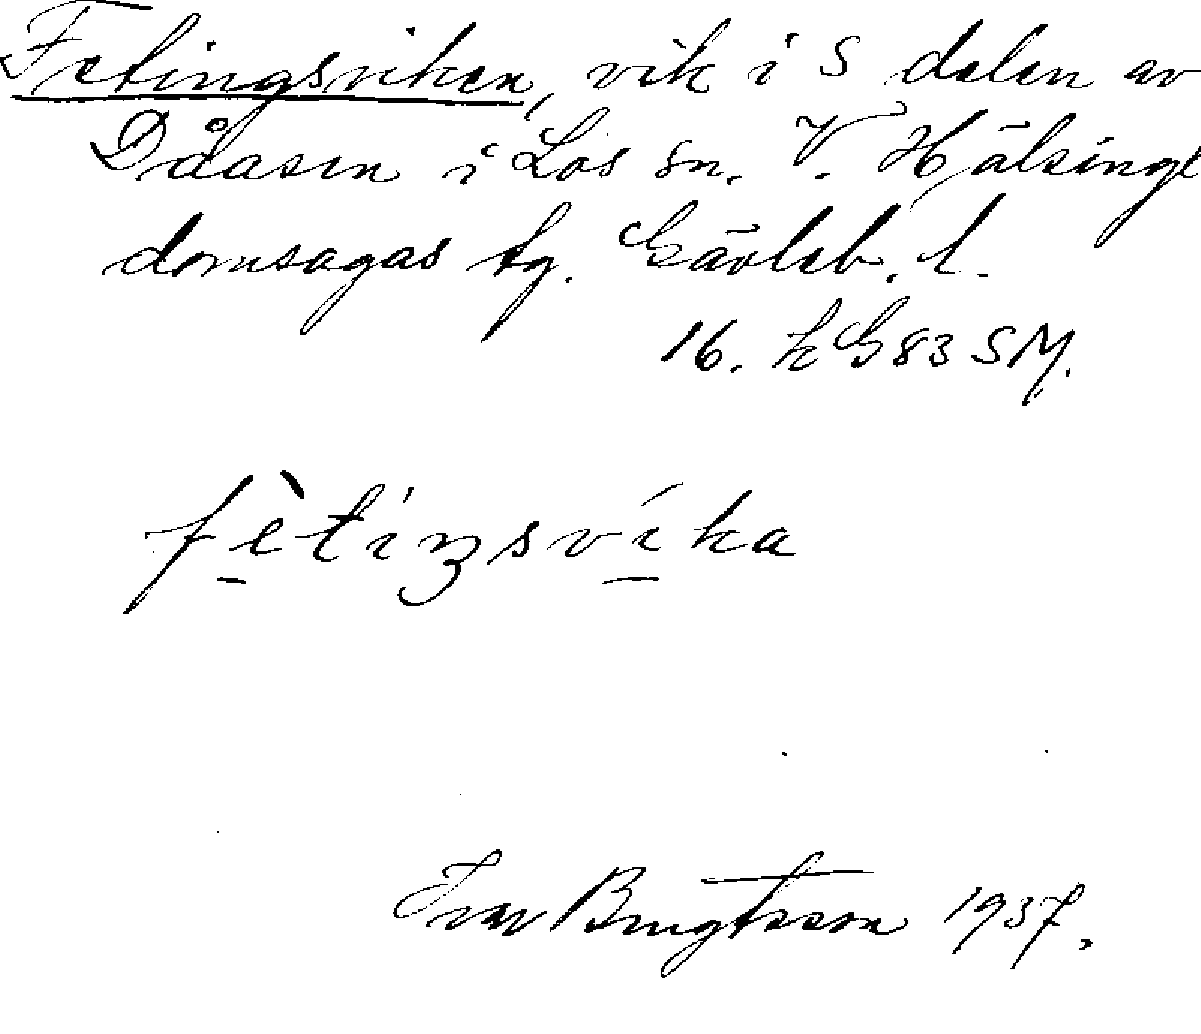 Fetingsviken, vik i S delen av
Dåasen i Los sn. V. Hälsingl
domsagas tg. Gävleb. l.
16. k G 83 SM.
fètiŋsvíka
Ivar Bengtsson 1937.